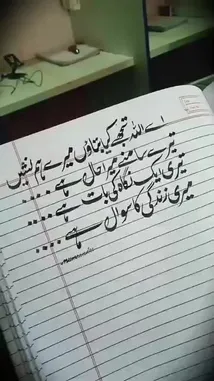 اے اللہ تجھے کیا بتاؤں میرے ہم نشیں
تیرے سامنے میرا حال ہے ....
تیری ایک نگاہ کی بات ہے ....
میری زندگی کا سوال ہے ....